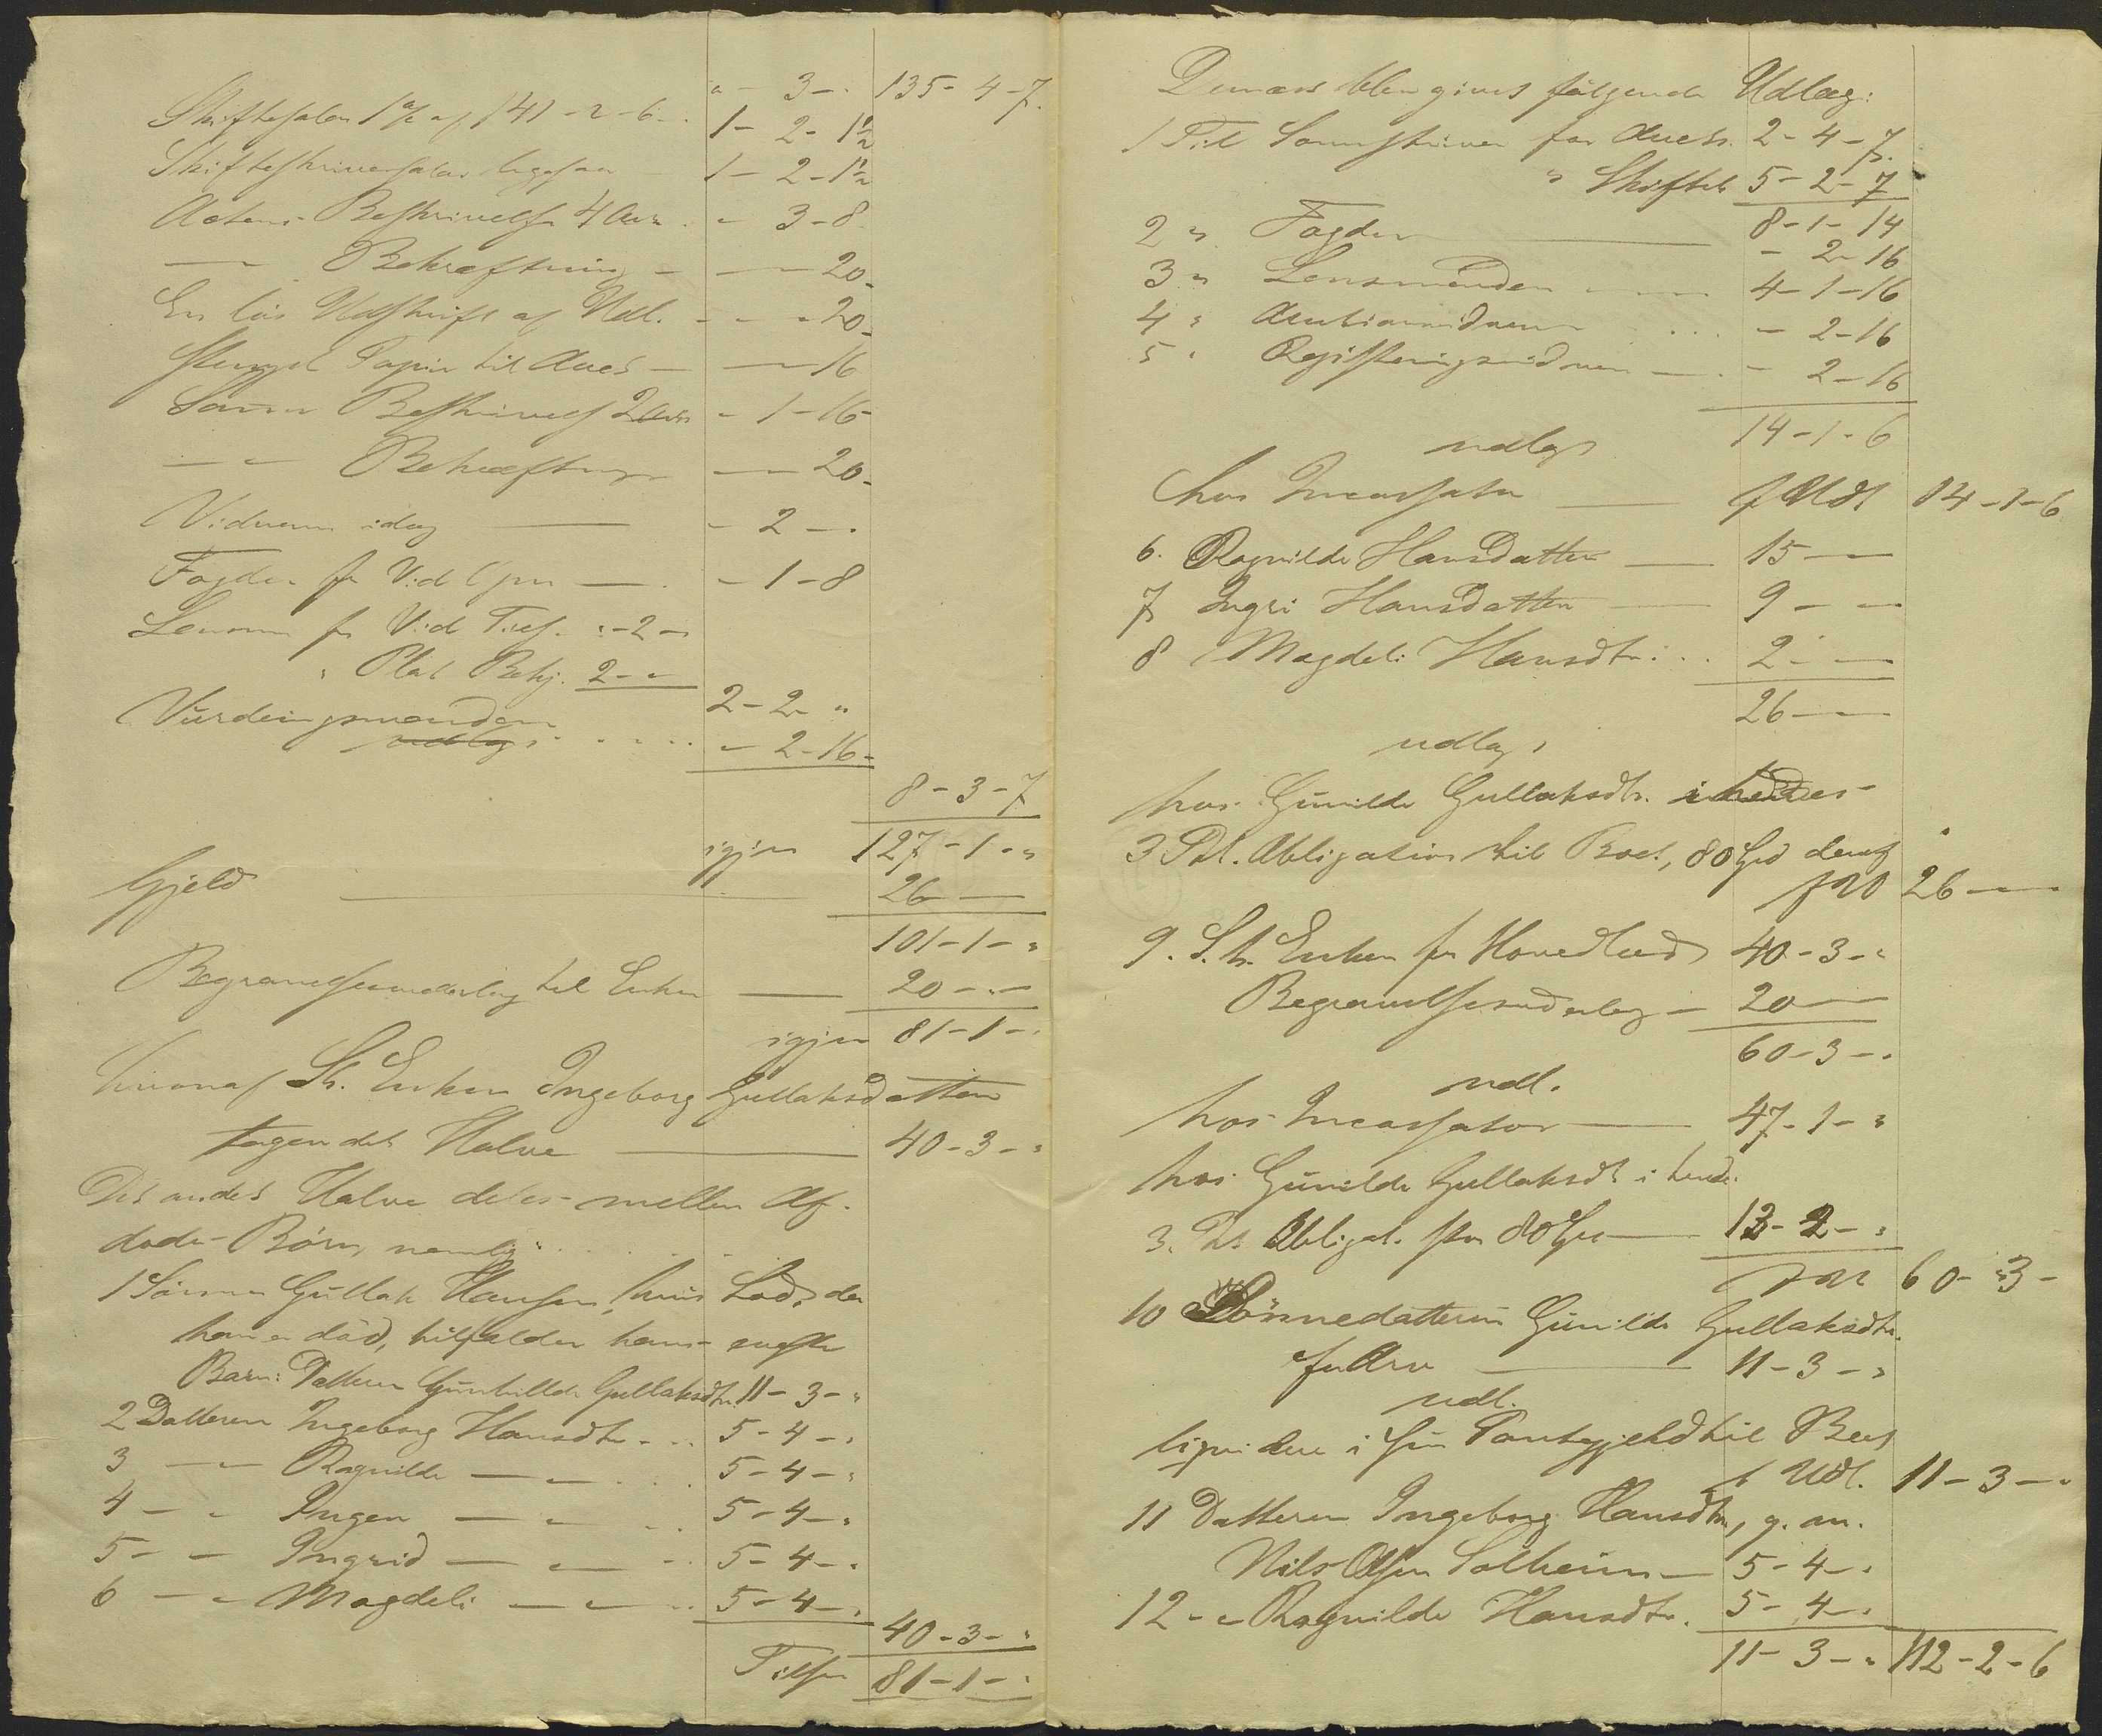 " - 3 - " 135 - 4 - 7.
Skiftesalær 1 % af 141 - 2 - 6 - 1 - 2 - 1½
Skifteskriversalær ligesaa 1 - 2 - 1½
Actens Beskrivelse 4 Ark - 3 - 8
— Bekræftning - — 20 -
En løs Udskrift af Udl. - - - 20 -
Stemplet Papir til Auct — — 16
Samme Beskrivelse 2 Ark - 1 - 16 -
— " Bekræftning — 20 -
Vidnerne idag — - 2 - "
Fogden for — - 1 - 8
Lensm for " - 2 - "
" 2 - "
2 - 2 - "
Vurderingsmændene
udlagt - 2 - 16 -
8 - 3 - 7
igjen 127 - 1 - "
Gjeld — 26 —
101 - 1 - "
Begravelsesunderlag til Enken — 20 - " -
igjen 81 - 1 - "
hvoraf St. Enken Ingeborg Gullaksdatter
tager det Halve — 40 - 3 - "
Det andet Halve deles mellem Af-
døde Børn, nemlig:
1 Sønnen Gullak Hansen, hvis Lod, da
han er død, tilfalder hans eneste
Barn: Datteren Gunhilde Gullaksdtr. 11 - 3 - "
2 Datteren Ingeborg Hansdtr. . . 5 - 4 - "
3 — " Ragnilde — " 5 - 4 - "
4 - " Inger — " 5 - 4 - "
5 - — Ingrid — " 5 - 4 - "
6 — " Magdeli — " 5 - 4 - "
40 - 3 - "
Tilsm 81 - 1 - "
Dernæst blev givet følgende Udlæg:
1 Til Sorenskriver for Auct. 2 - 4 - 7.
" Skiftet 5 - 2 - 7
8 - 1 - 14
2 " Fogden — - 2 - 16
3 " Lensmanden 4 - 1 - 16
4 " Auctionsvidnerne . . . - 2 - 16
5 " Registeringsvidnerne — - 2 - 16
14 - 1 - 6
udlagt
hos Incassator — f Udl 14 - 1 - 6
6. Ragnilde Hansdatter — 15 —
7 Ingri Hansdatter — 9 - —
8 Magdeli Hansdtr: . . 2 - —
26 —
udlagt
hos Gunilde Gullaksdtr. i hendes
3 Pd. Obligation til Boet, 80 Spd deraf
26 —
9. S. h. Enken for Hovedlod 40 - 3 - "
Begravelsesunderlag — 20 —
60 - 3 - "
udl.
hos Incassator — 47 - 1 - "
hos Gunilde Gullaksdt i hende.
3. Pd Obligat. stor 80 Spd — 13 - 2 - "
60 - 3 -
10 Sønnedatteren Gunilde Gullaksdtr.
for Arv — 11 - 3 - "
udl.
liqvidere i sin Pantegjeld til Boet
f Udl. 11 - 3 - "
11 Datteren Ingeborg Hansdtr, g. m.
Nils Olsen Solheim — 5 - 4 - "
12 - " Ragnilde Hansdtr. 5 - 4 - "
11 - 3 - " 112 - 2 - 6